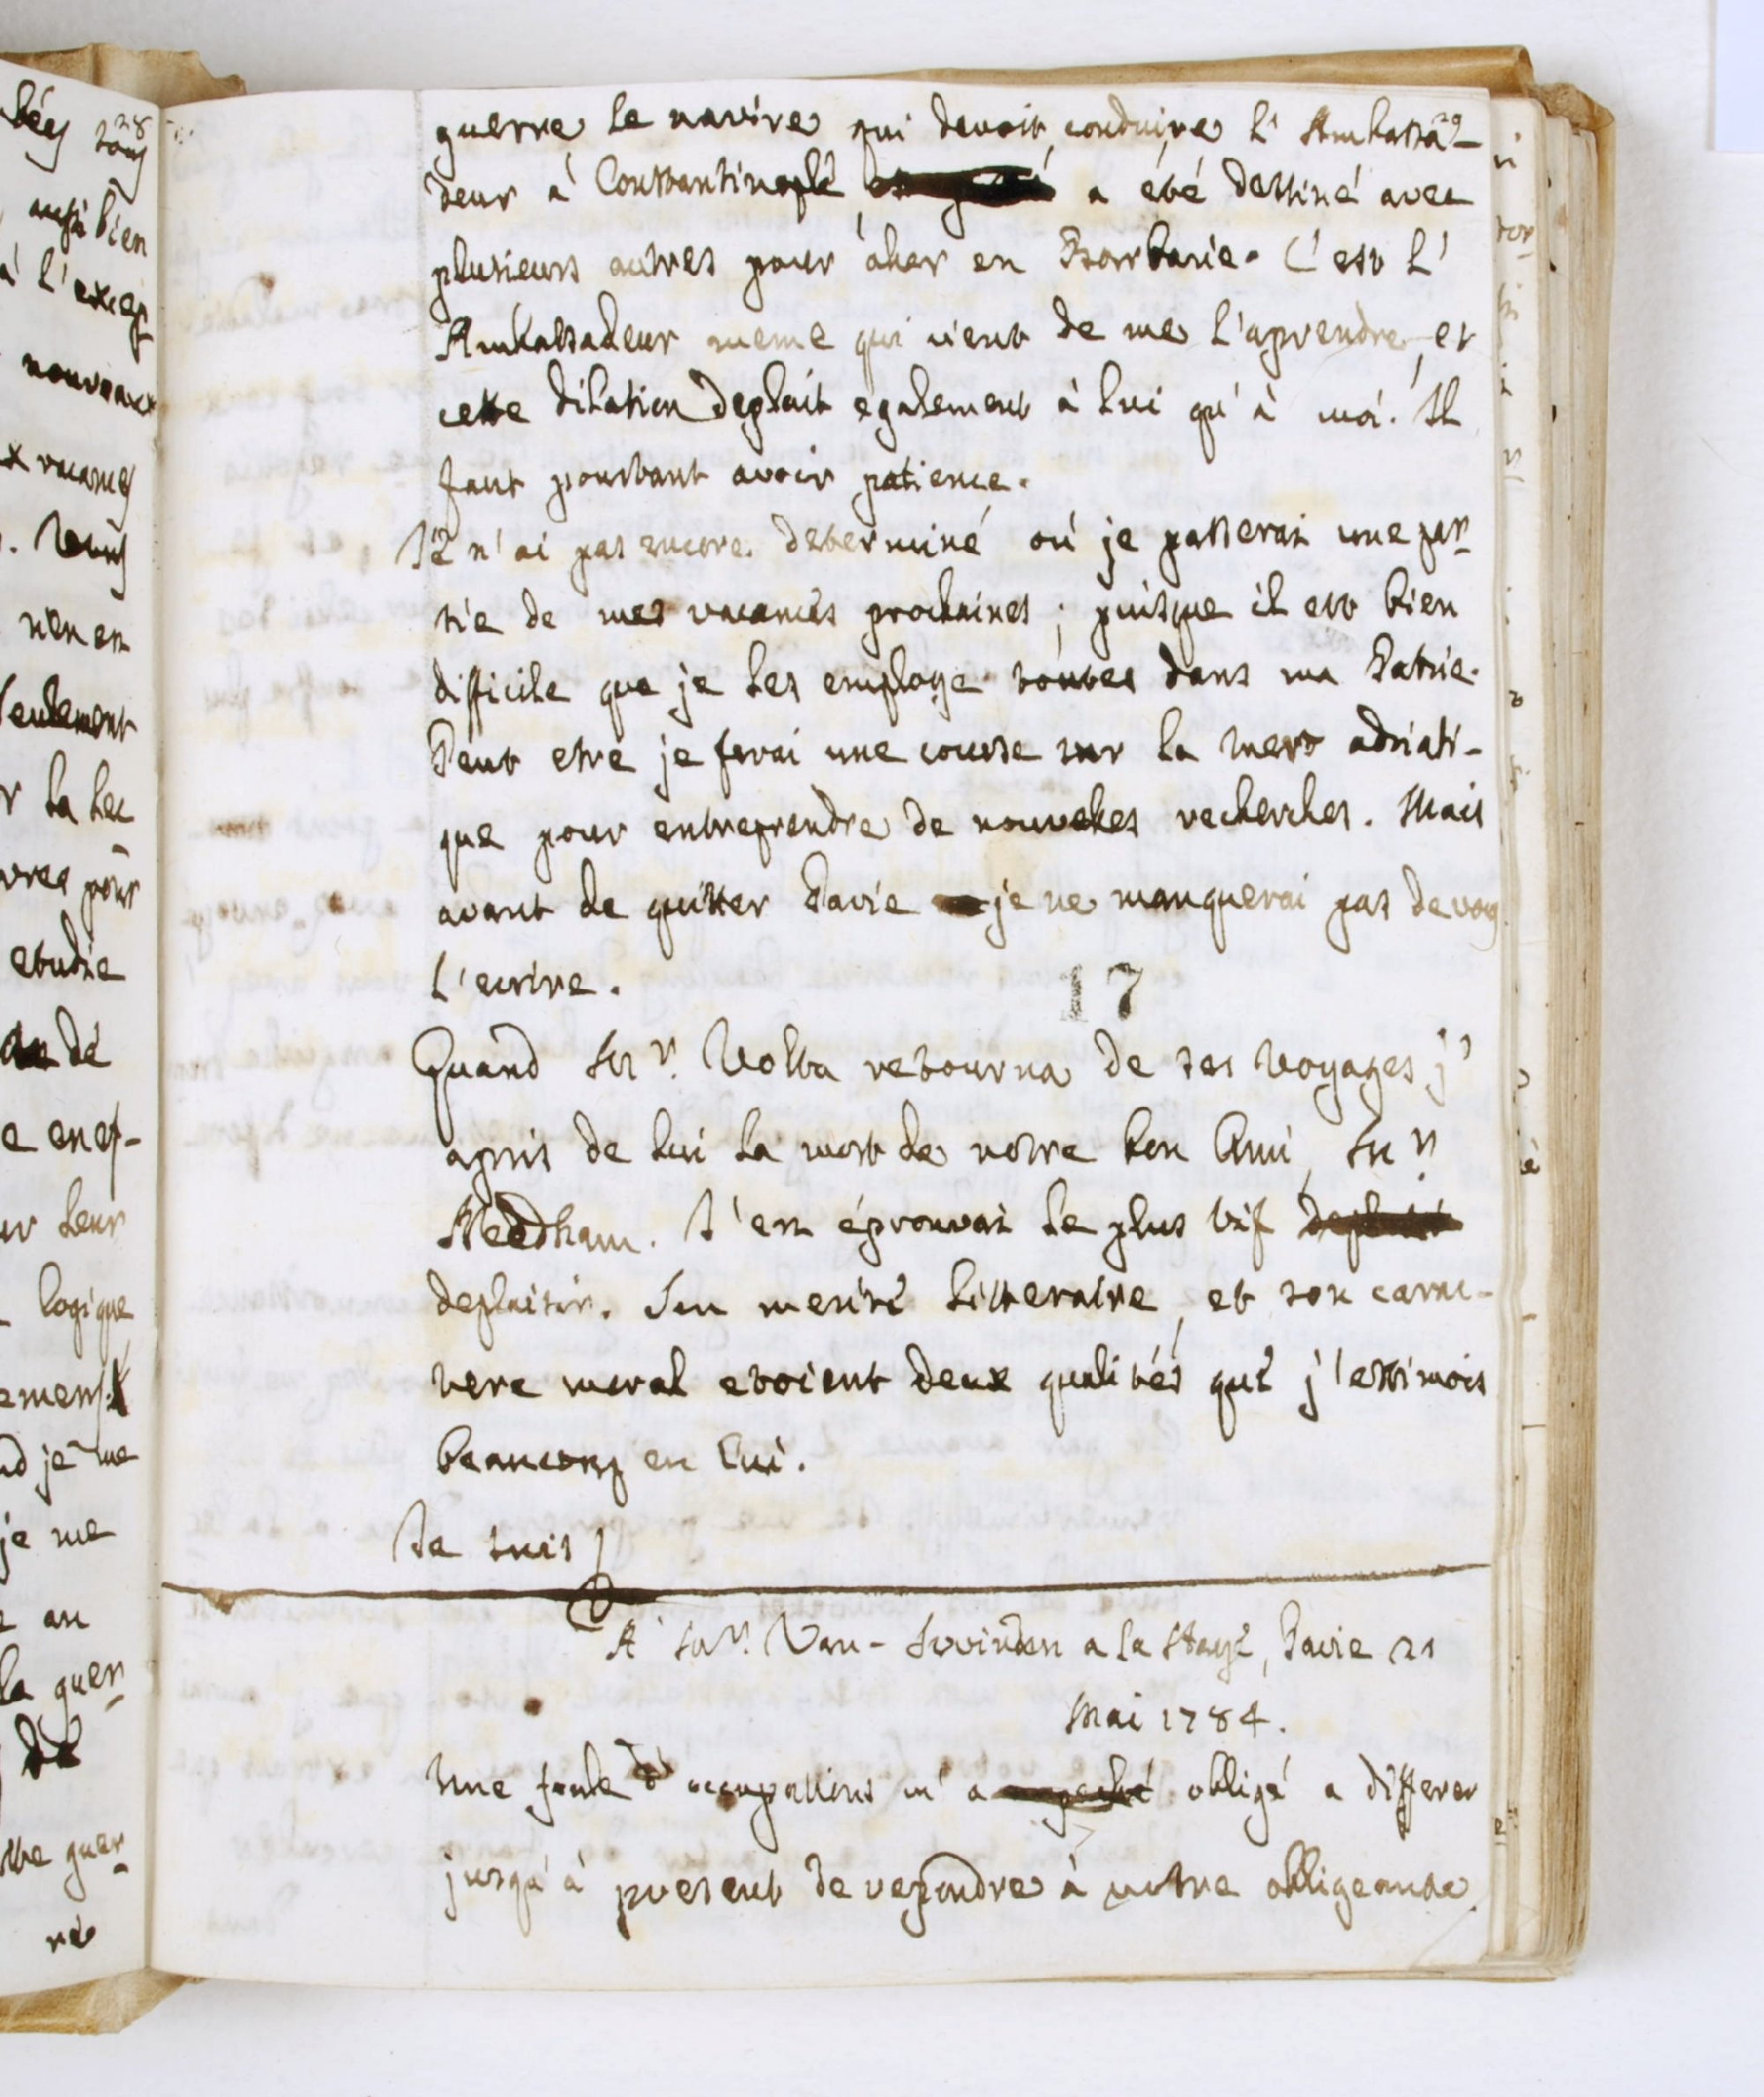 guerre le navire qui devoit conduire l' Ambassa-
29
deur à Constantinople a été destiné avec
plusieurs autres pour aller en Barbarie. C'est l'
Ambassadeur meme qui vient de me l'aprendre, et
cette dilation deplait egalement à lui qu'à moi. Il
faut pourtant avoir patience.
Je n'ai pas encore determiné où je passerai une par-
tie de mes vacances prochaines; puisque il est bien
difficile que je les employe toutes dans ma Patrie.
Peut etre je ferai une course sur la mer adriati-
que pour entreprendre de nouvelles recherches. Mais
avant de quitter Pavie je ne manquerai pas de vous
l'ecrire.
17
Quand Mr. Volta retourna de ses voyages j'
apris de lui la mort de notre bon Ami, Mr.
Needham. J'en éprouvai le plus vif deplaisi
deplaisir. Son merite litteraire, et son carac-
tere moral etoient deux qualités que j'estimois
beaucoup en lui.
Je suis
A Mr. Van-Swinden a la Haye, Pavie 21
Mai 1784.
Une foule d' occupations m'a obligé a differer
jusqu'à present de repondre à votre obligeante
28
aussi bien
à l'excep
nouveaux
x vacances
rien en
seulement
r la lec
vres pour
etudie
de
e enef-
ur leur
logique
ement
nd je me
je me
au
la guer-
de
tre guer-